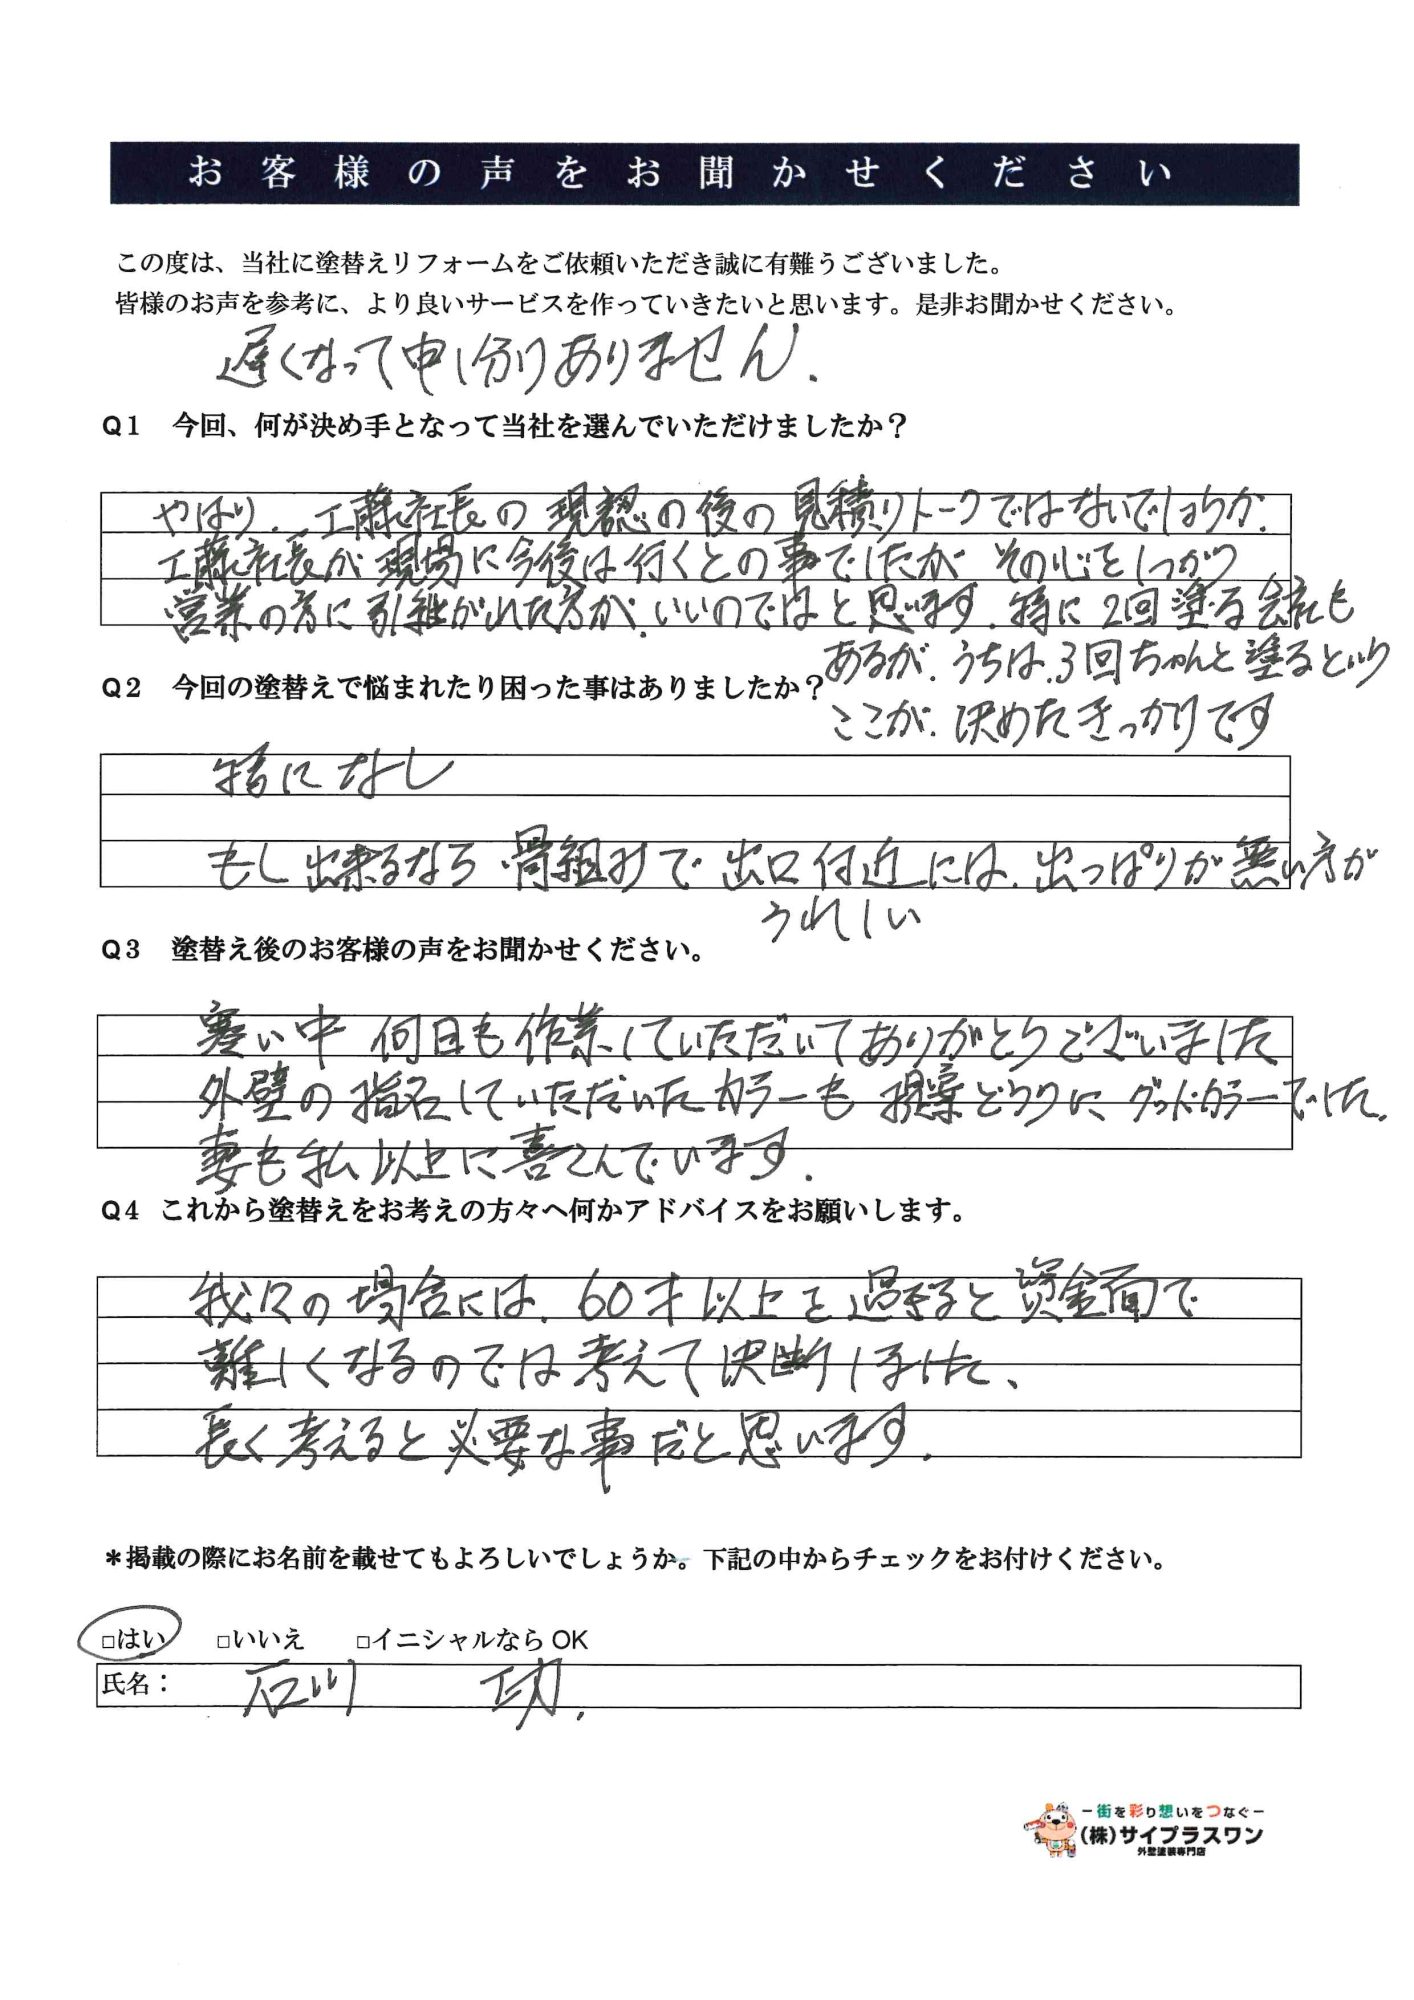 お客様の声をお聞かせください
この度は、当社に塗替えリフォームをご依頼いただき誠に有難うございました。
皆様のお声を参考に、より良いサービスを作っていきたいと思います。是非お聞かせください。
遅くなって申し分りありません.
Q1 今回、何が決め手となって当社を選んでいただけましたか？
やはり、工藤社長の現認の後の見積りトークではないでしょうか.
工藤社長が現場に今後は行くとの事でしたが その心をしっかり
営業の方に引継がれた方が、いいのではと思います. 特に2回塗る会社も
あるが、うちは、3回ちゃんと塗るという
ここが、決めたきっかけです
Q2 今回の塗替えで悩まれたり困った事はありましたか？
特になし
もし出来るなら骨組みで出口付近には、出っぱりが無い方が
うれしい
Q3 塗替え後のお客様の声をお聞かせください。
寒い中 何日も作業していただいてありがとうございました
外壁の指名していただいたカラーも提案どうりに、グッドカラーでした.
妻も私以上に喜こんでいます.
Q4 これから塗替えをお考えの方々へ何かアドバイスをお願いします。
我々の場合には、60才以上を過ぎると資金面で
難しくなるのでは考えて決断しました、
長く考えると必要な事だと思います.
＊掲載の際にお名前を載せてもよろしいでしょうか。下記の中からチェックをお付けください。
□はい □いいえ □イニシャルならOK
氏名： 石川 功.
－街を彩り想いをつなぐ－
(株)サイプラスワン
外壁塗装専門店